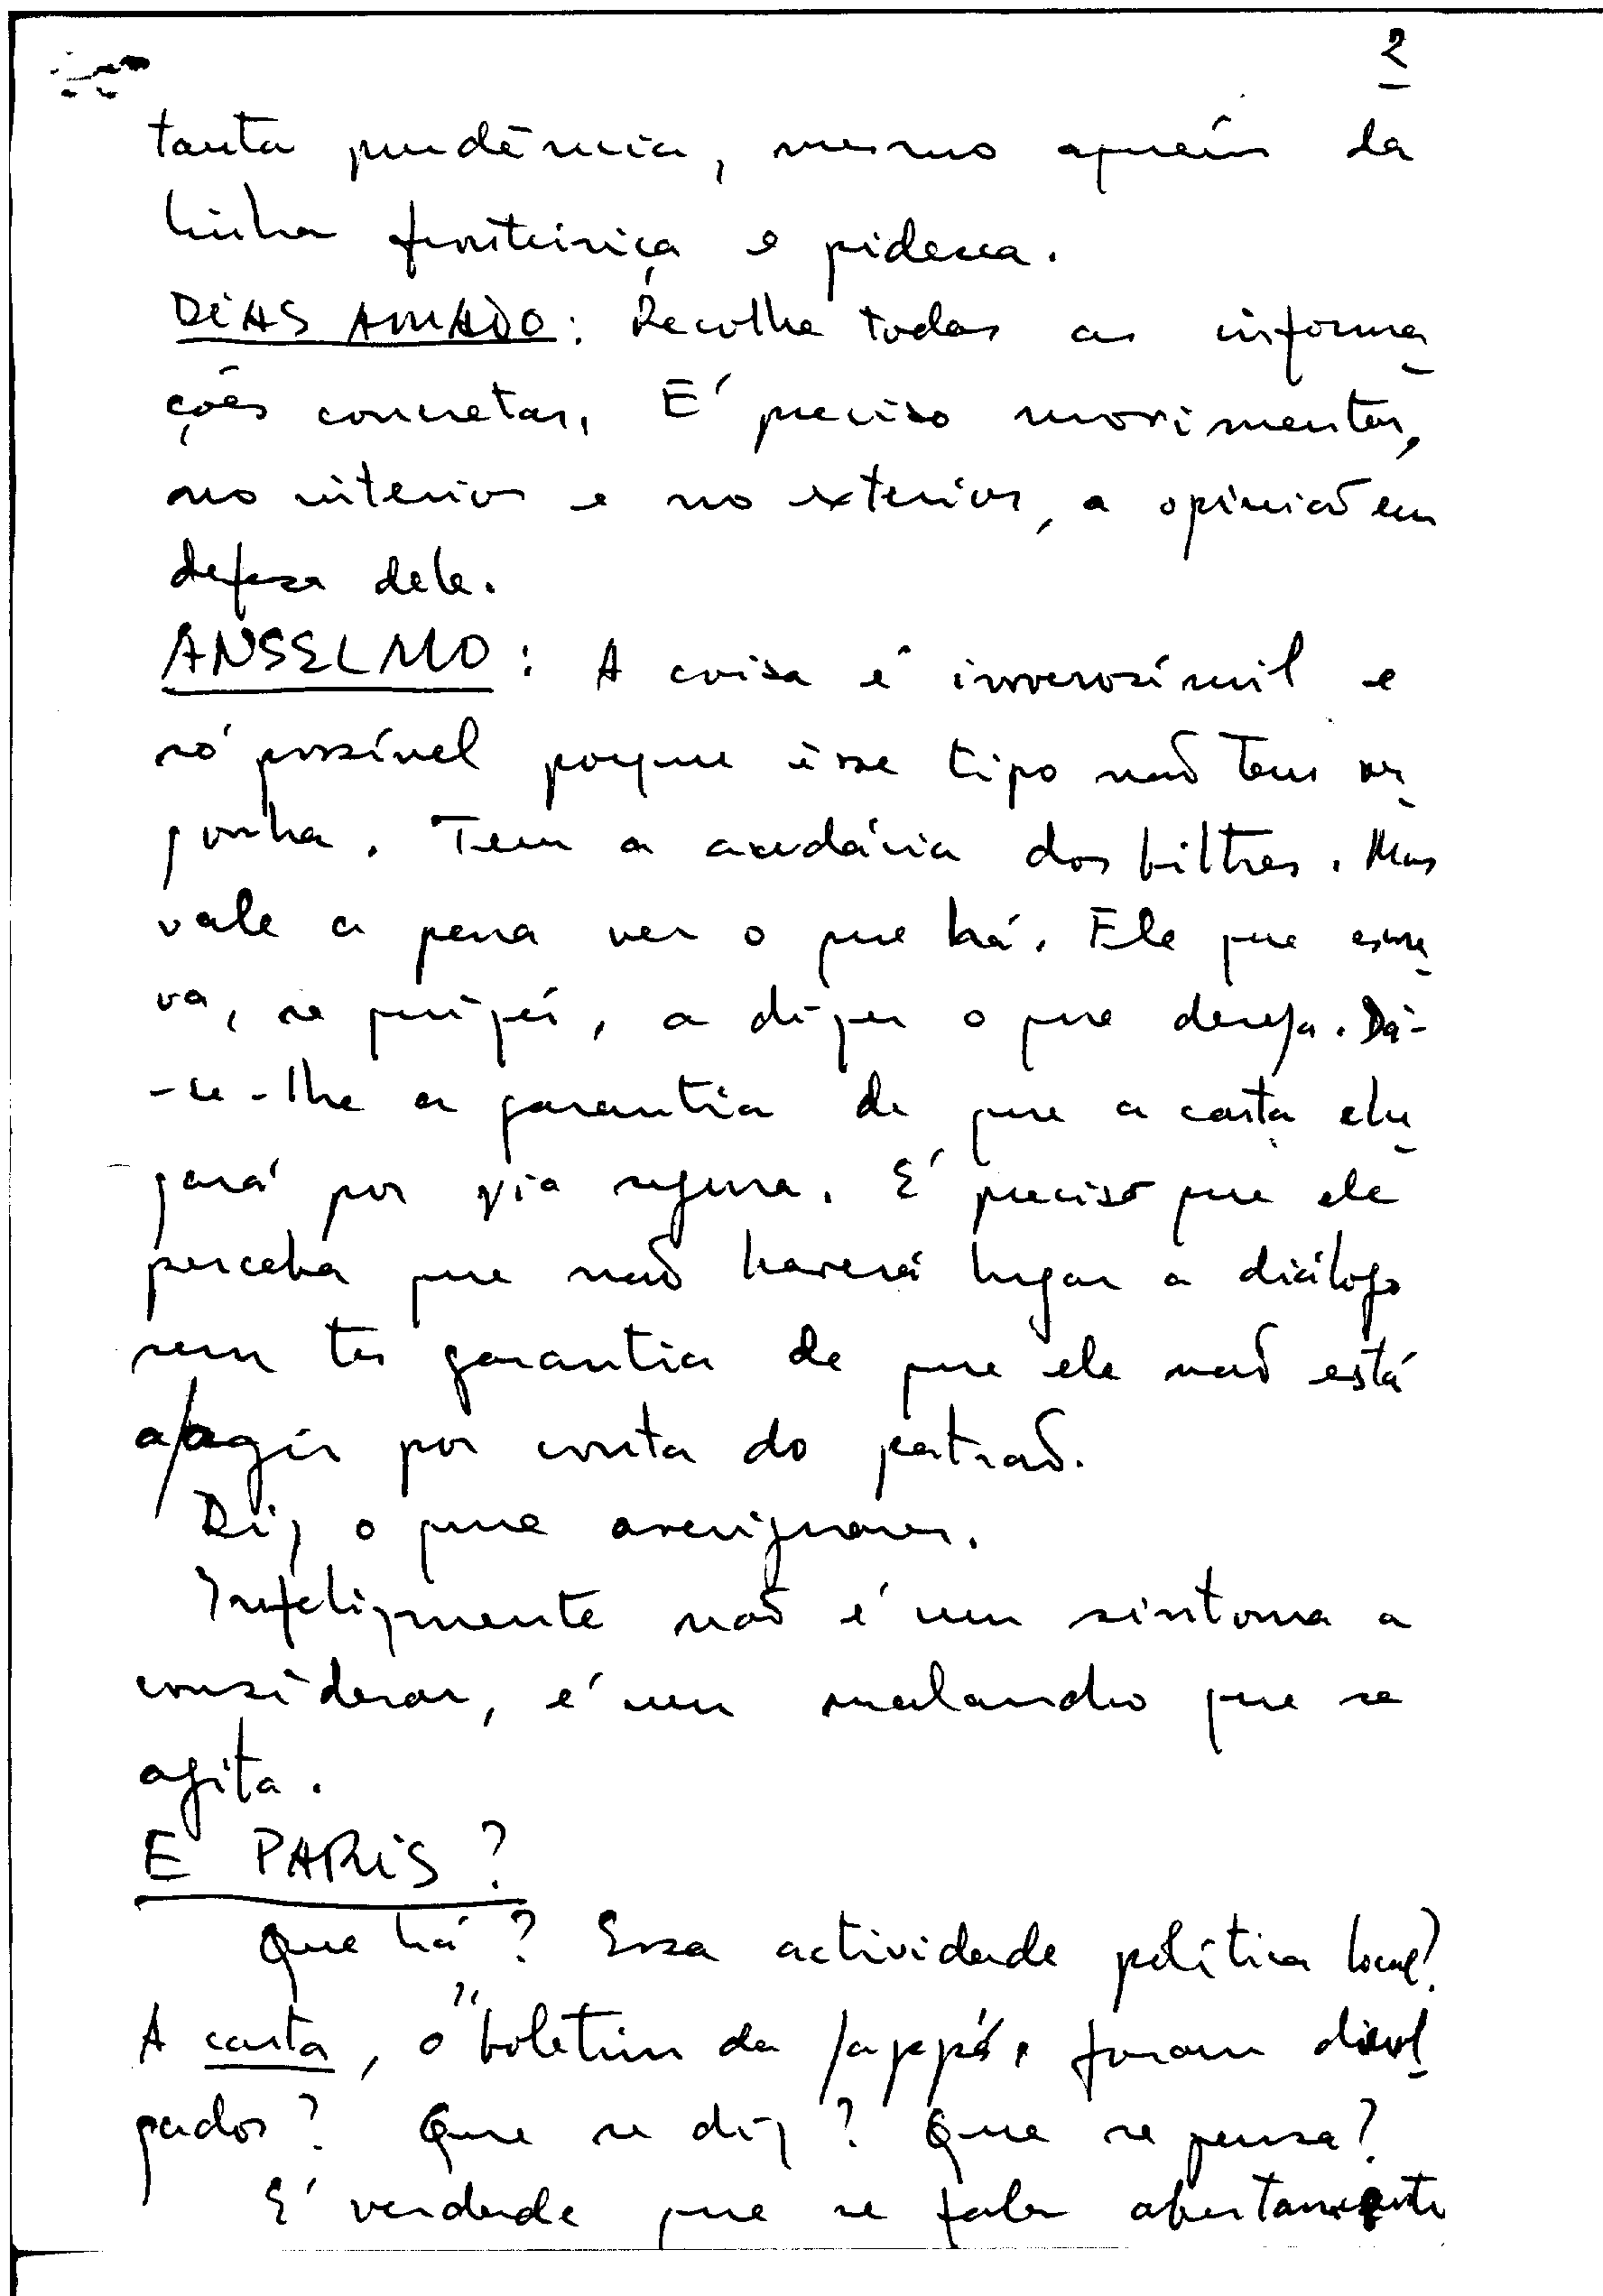 2
tanta prudência, mesmo aquém da
linha fronteiriça e pidesca.
DIAS AMADO: Recolhe todas as informa
ções concretas. É preciso movimentar,
no interior e no exterior, a opinião em
defesa dele.
ANSELMO: A coisa é inverosímil e
só possível porque êsse tipo não tem ver
gonha. Tem a audácia dos biltres. Mas
vale a pena ver o que há. Ele que escre
va, se quizer, a dizer o que deseja. Dá-
-se-lhe a garantia de que a carta che
gará por via segura. É preciso que ele
perceba que não haverá lugar a diálogo
sem ter garantia de que ele não está
a agir por conta do patrão.
Diz o que averiguares.
Infelizmente não é um sintoma a
considerar, é um malandro que se
agita.
E PARIS?
Que há? Essa actividade política local?
A carta, o "boletim da foram divul
gados? Que se diz? Que se pensa?
É verdade que se fala abertamente